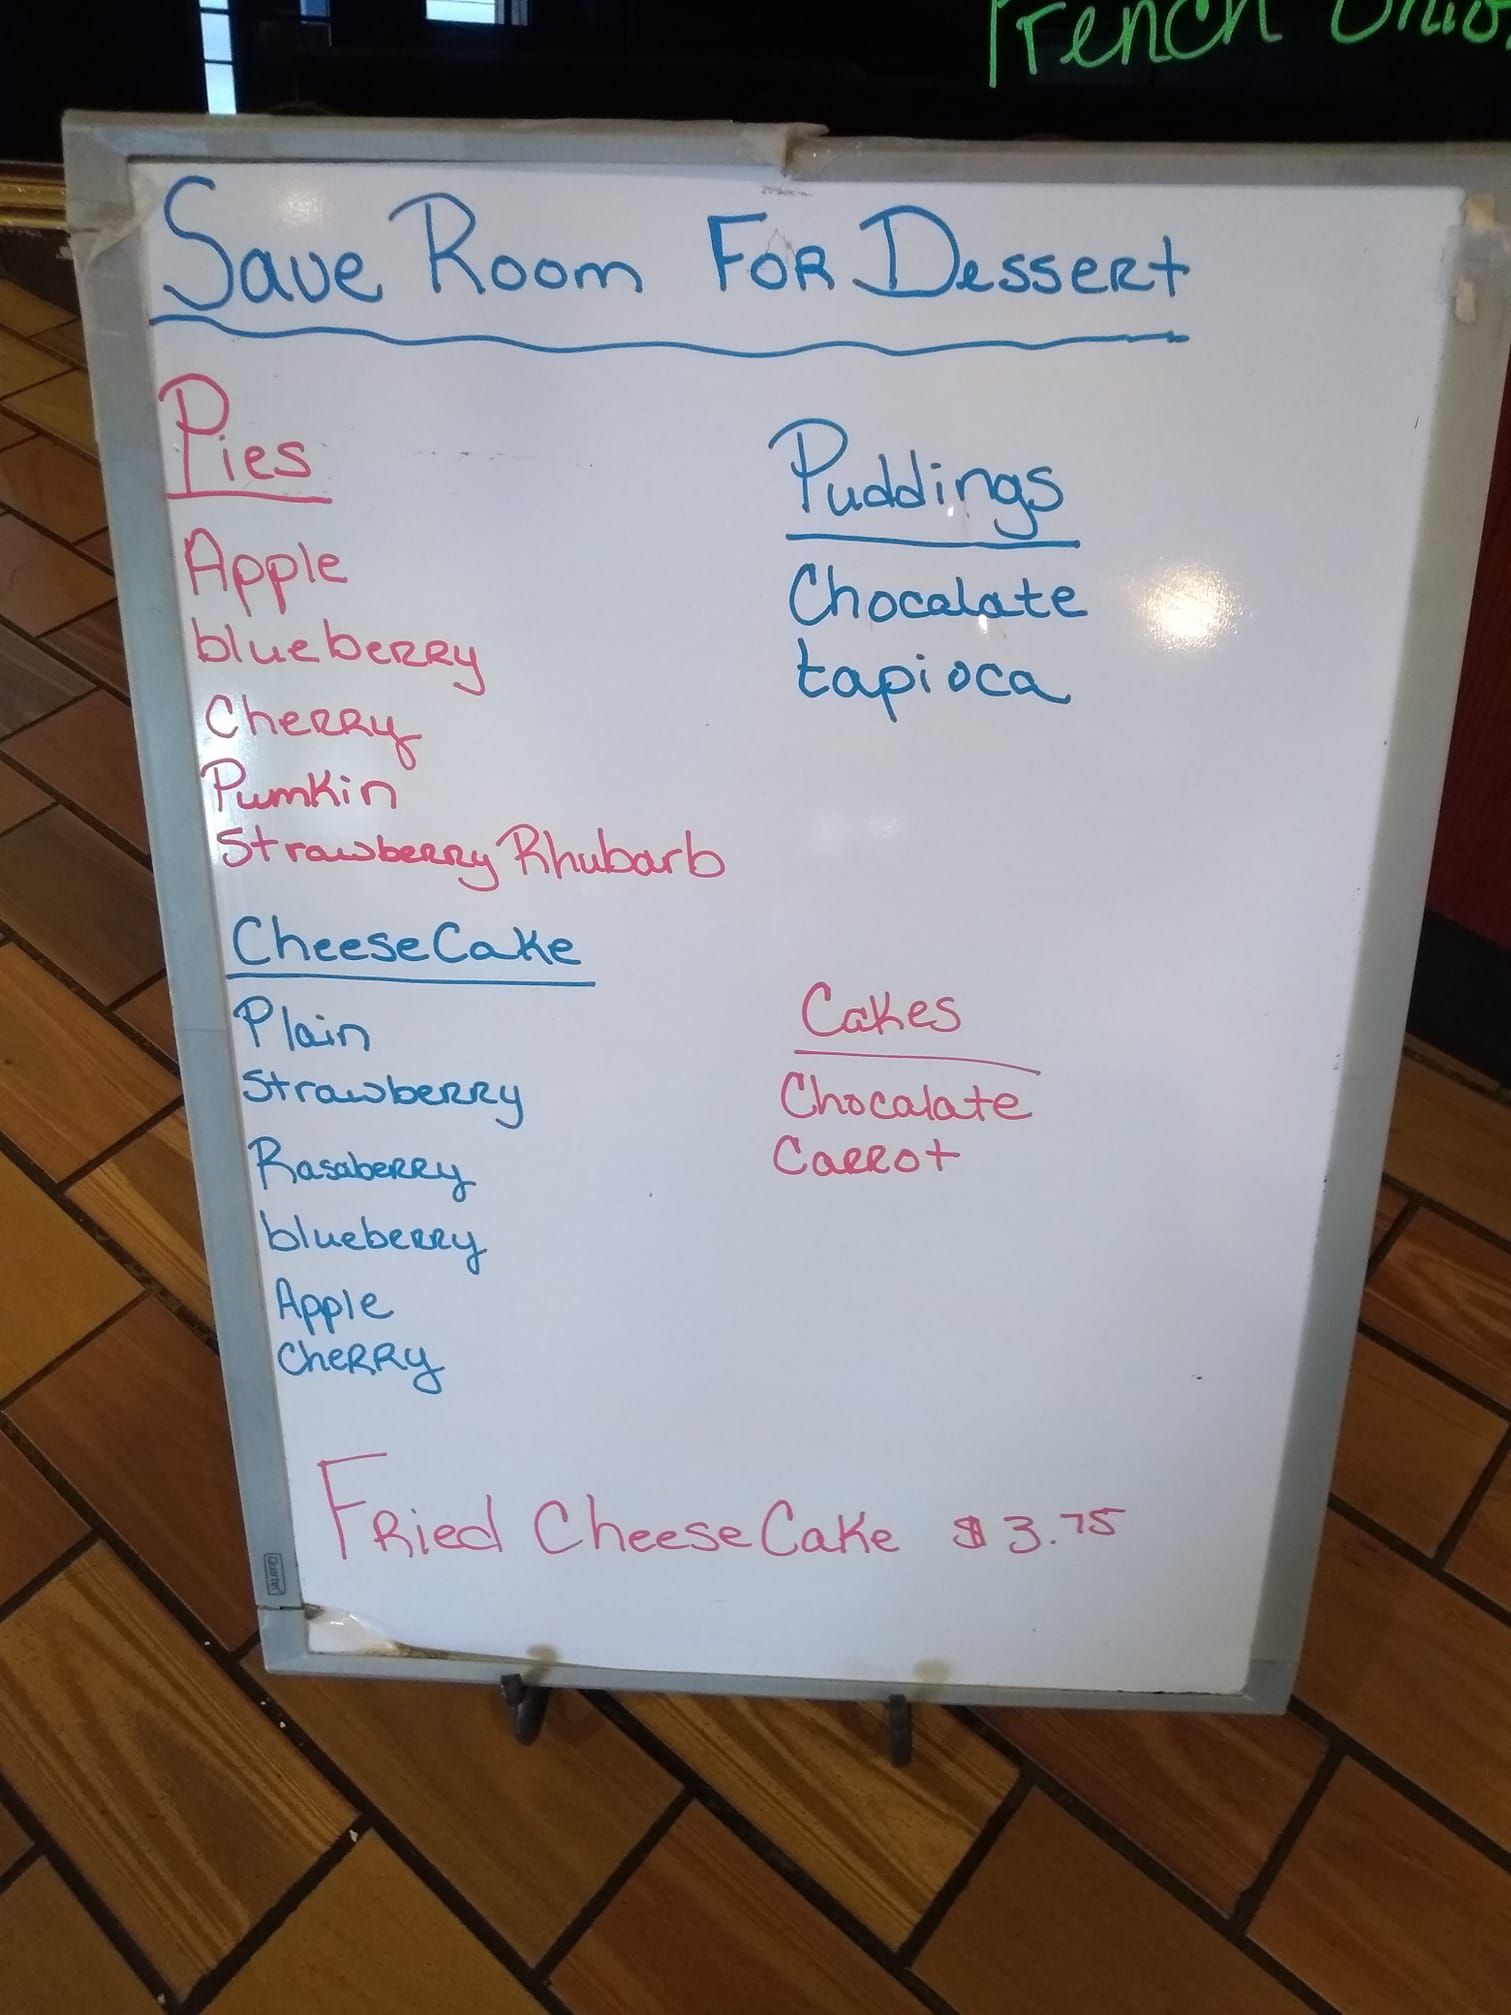 French Onio
Save Room For Dessert
Pies
Apple
blueberry
Cherry
Pumkin
Strawberry Rhubarb
Puddings
Chocalate
tapioca
CheeseCake
Plain
Strawberry
Rasaberry
blueberry
Apple
Cherry
Cakes
Chocalate
Carrot
Fried CheeseCake $3.75
Quartet